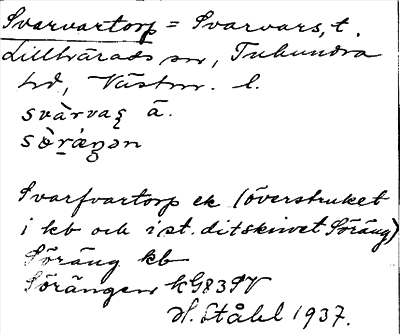 Svarvartorp = Svarvars, t.
Lillhärads sn, Tuhundra
hd, Västm. l.
svàrvaʂ ä.
sö̀rä́ŋən
Svarfvartorp ek (överstruket
i kb och i st. ditskrivet Söräng)
Söräng kb
Sörängen KG83SV
H. Ståhl 1937.